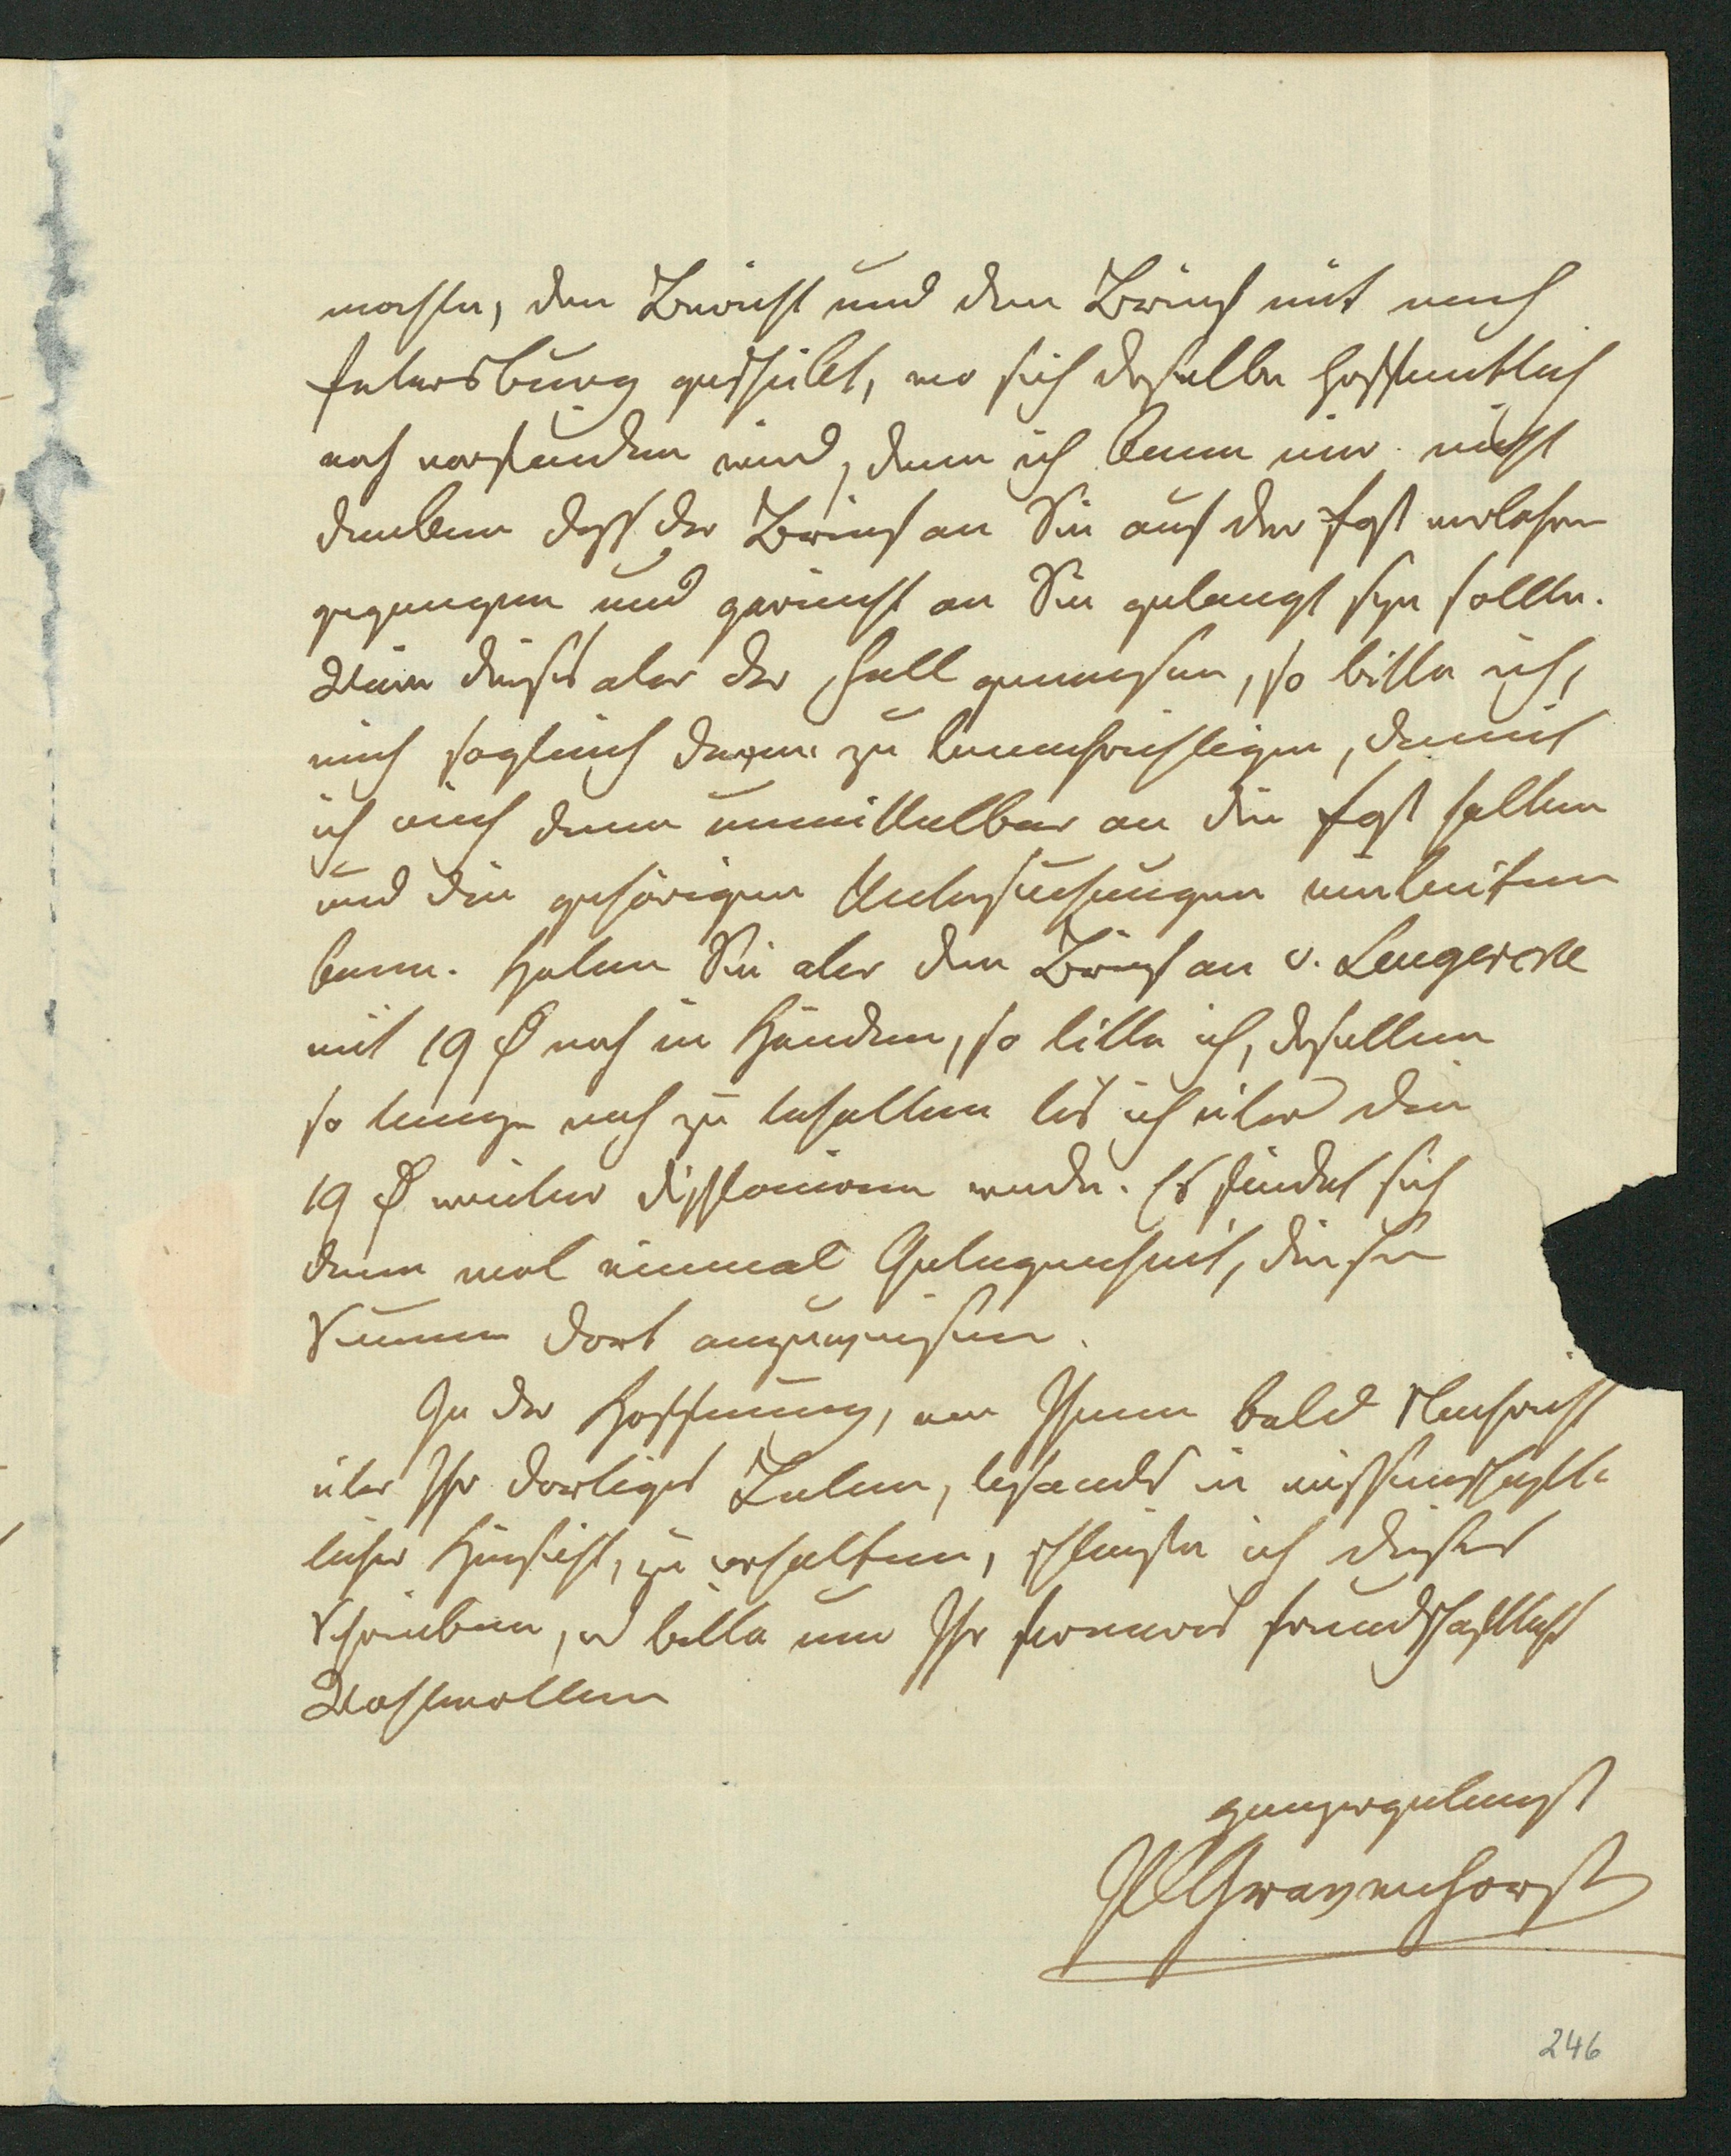 machte, den Bericht und den Brief mit nach
Petersburg geschickt, wo sich derselbe hoffentlich
noch vorfinden wird, denn ich kann mir nicht
denken daß der Brief an Sie auf der Post verlohren
gegangen und gar nicht an Sie gelangt seyn sollte.
Wäre dieses aber der Fall gewesen, so bitte ich,
mich sogleich davon zu benachrichtigen, damit
ich mich dann unmittelbar an die Post halten
und die gehörigen Untersuchungen einleiten
kann. Haben Sie aber den Brief an v. Lengercke
mit 19 noch in Händen, so bitte ich, denselben
so lange noch zu behalten bis ich über die
19 weiter disponiren werde. Es findet sich
dann wol einmal Gelegenheit, diese
Summe dort anzuweisen.
In der Hoffnung, von Ihnen bald Nachricht
über Ihr dortiges Leben, besonders in wissenschaft-
licher Hinsicht, zu erhalten, schließe ich dieses
Schreiben, u bitte um Ihr ferneres freundschaftliches
Wohlwollen
ganz ergebenst
Gravenhorst
246